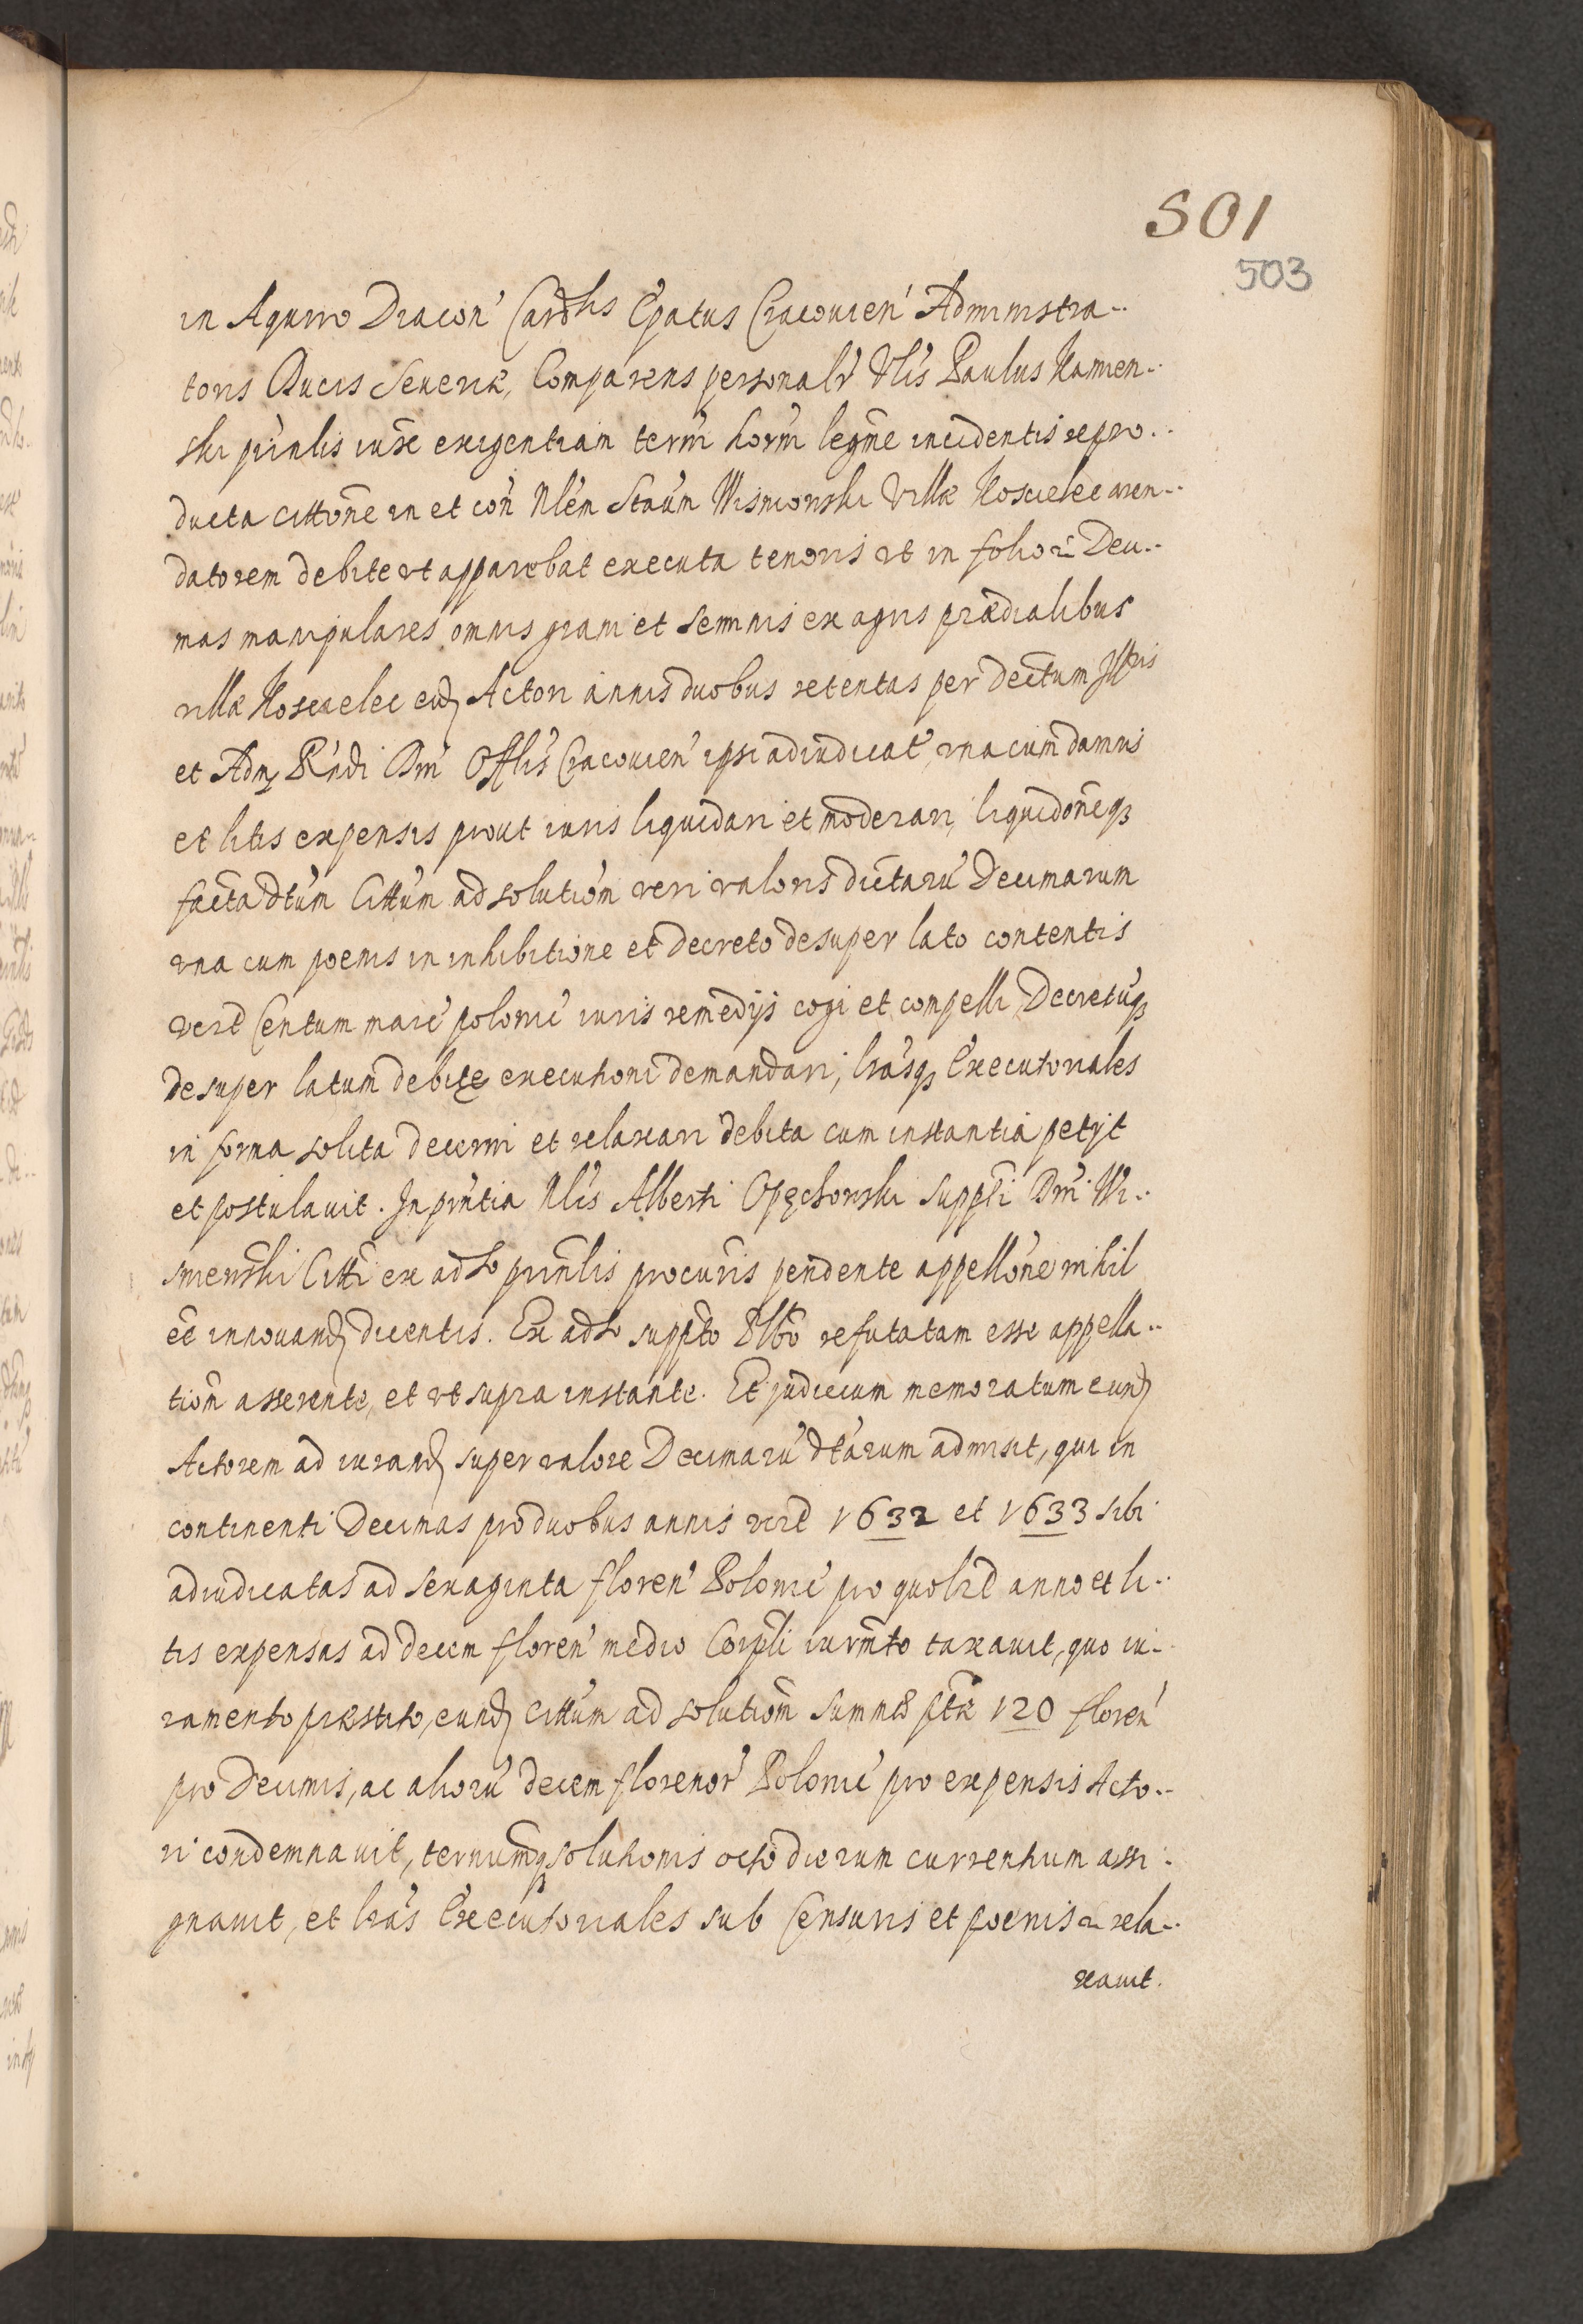 501
503
in Aquiro Diacon' Cardlis Epatus Cracovien' Administra-
toris Ducis Severiæ, Comparens personalr Nlis Paulus Kamien-
ski prinlis iuxe exigentiam termi horni legme incidentis repro-
ducta cittone in et con Nlem Staum Wisniowski Villæ Koscielec aren-
datorem debite vt apparebat executa tenoris vt in folio Deci-
mas manipulares omnis grani et seminis ex agris prædialibus
villæ Koscielec eid Actori annis duobus retentas per dectum Illris
et Adm Rndi Dni Offlis Cracovien' ipsi adiudicat' vna cum damnis
et litis expensis prout iuris liquidari et moderari, liquidoneq
facta dtum Cittum ad solution veri valoris dictaru Decimarum
vna cum poenis in inhibitione et decreto desuper lato contentis
vezt Centum marc' polonic' iuris remedijs cogi et compelli, Decretuq
desuper latum debite executioni demandari, lrasq Executoriales
in forma solita decerni et relaxari debita cum instantia petijt
et postulavit. In prntia Nlis Alberti Opęchowski suppti Dni Wi-
sniewski Citti ex adso prinlis procuris pendente appellone nihil
ee innovand dicentis. Ex adso suppto Nlbo refutatam esse appella-
tion asserente, et vt supra instante. Et judicium memoratum eund
Actorem ad iurand super valore Decimaru dtarum admisit, qui in
continenti Decimas pro duobus annis vezt 1632 et 1633 sibi
adiudicatas ad sexaginta floren' Polonic' pro quolzt anno et li-
tis expensas ad decem floren' medio Corpli iurmto taxavit, quo iu-
ramento præstito, eund cittum ad solution summæ ptæ 120 floren'
pro Decimis, ac alioru decem florenor' Polonic' pro expensis Acto-
ri condemnavit, terminumq solutionis octo dierum currentium assi-
gnavit, et lras Executoriales sub Censuris et poenis rela-
xavit.